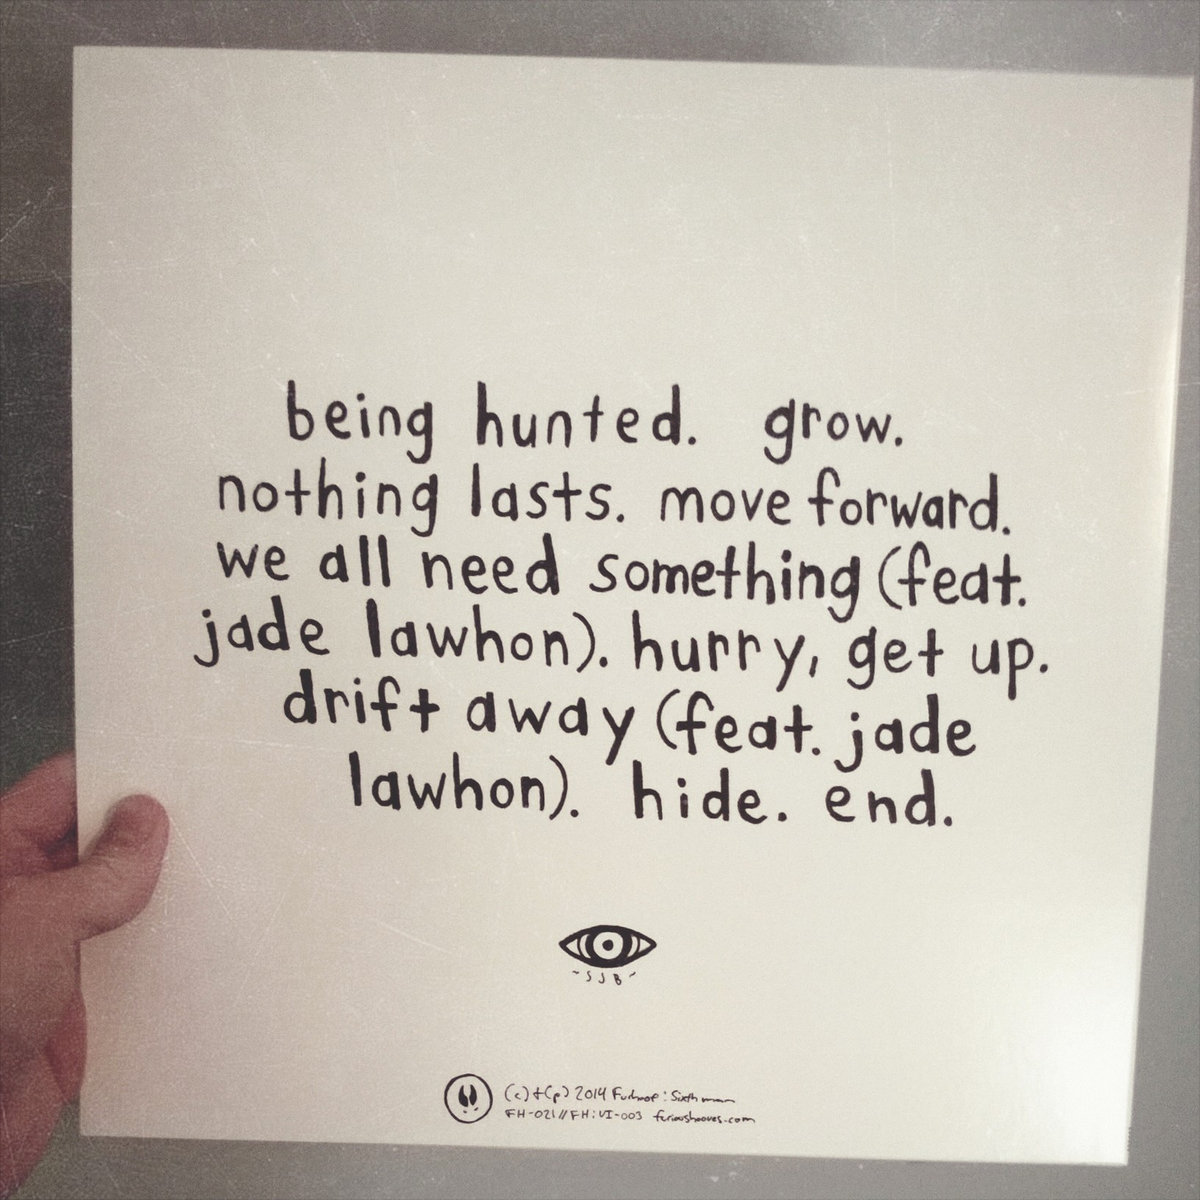 being hunted. grow.
nothing lasts. move forward.
we all need something (feat.
jade lawhon). hurry, get up.
drift away (feat. jade
lawhon). hide. end.
~SJB~
(c)+(p) 2014 Furhoof : Sixth man
FH-021//FH:VI-003 furioushooves.com